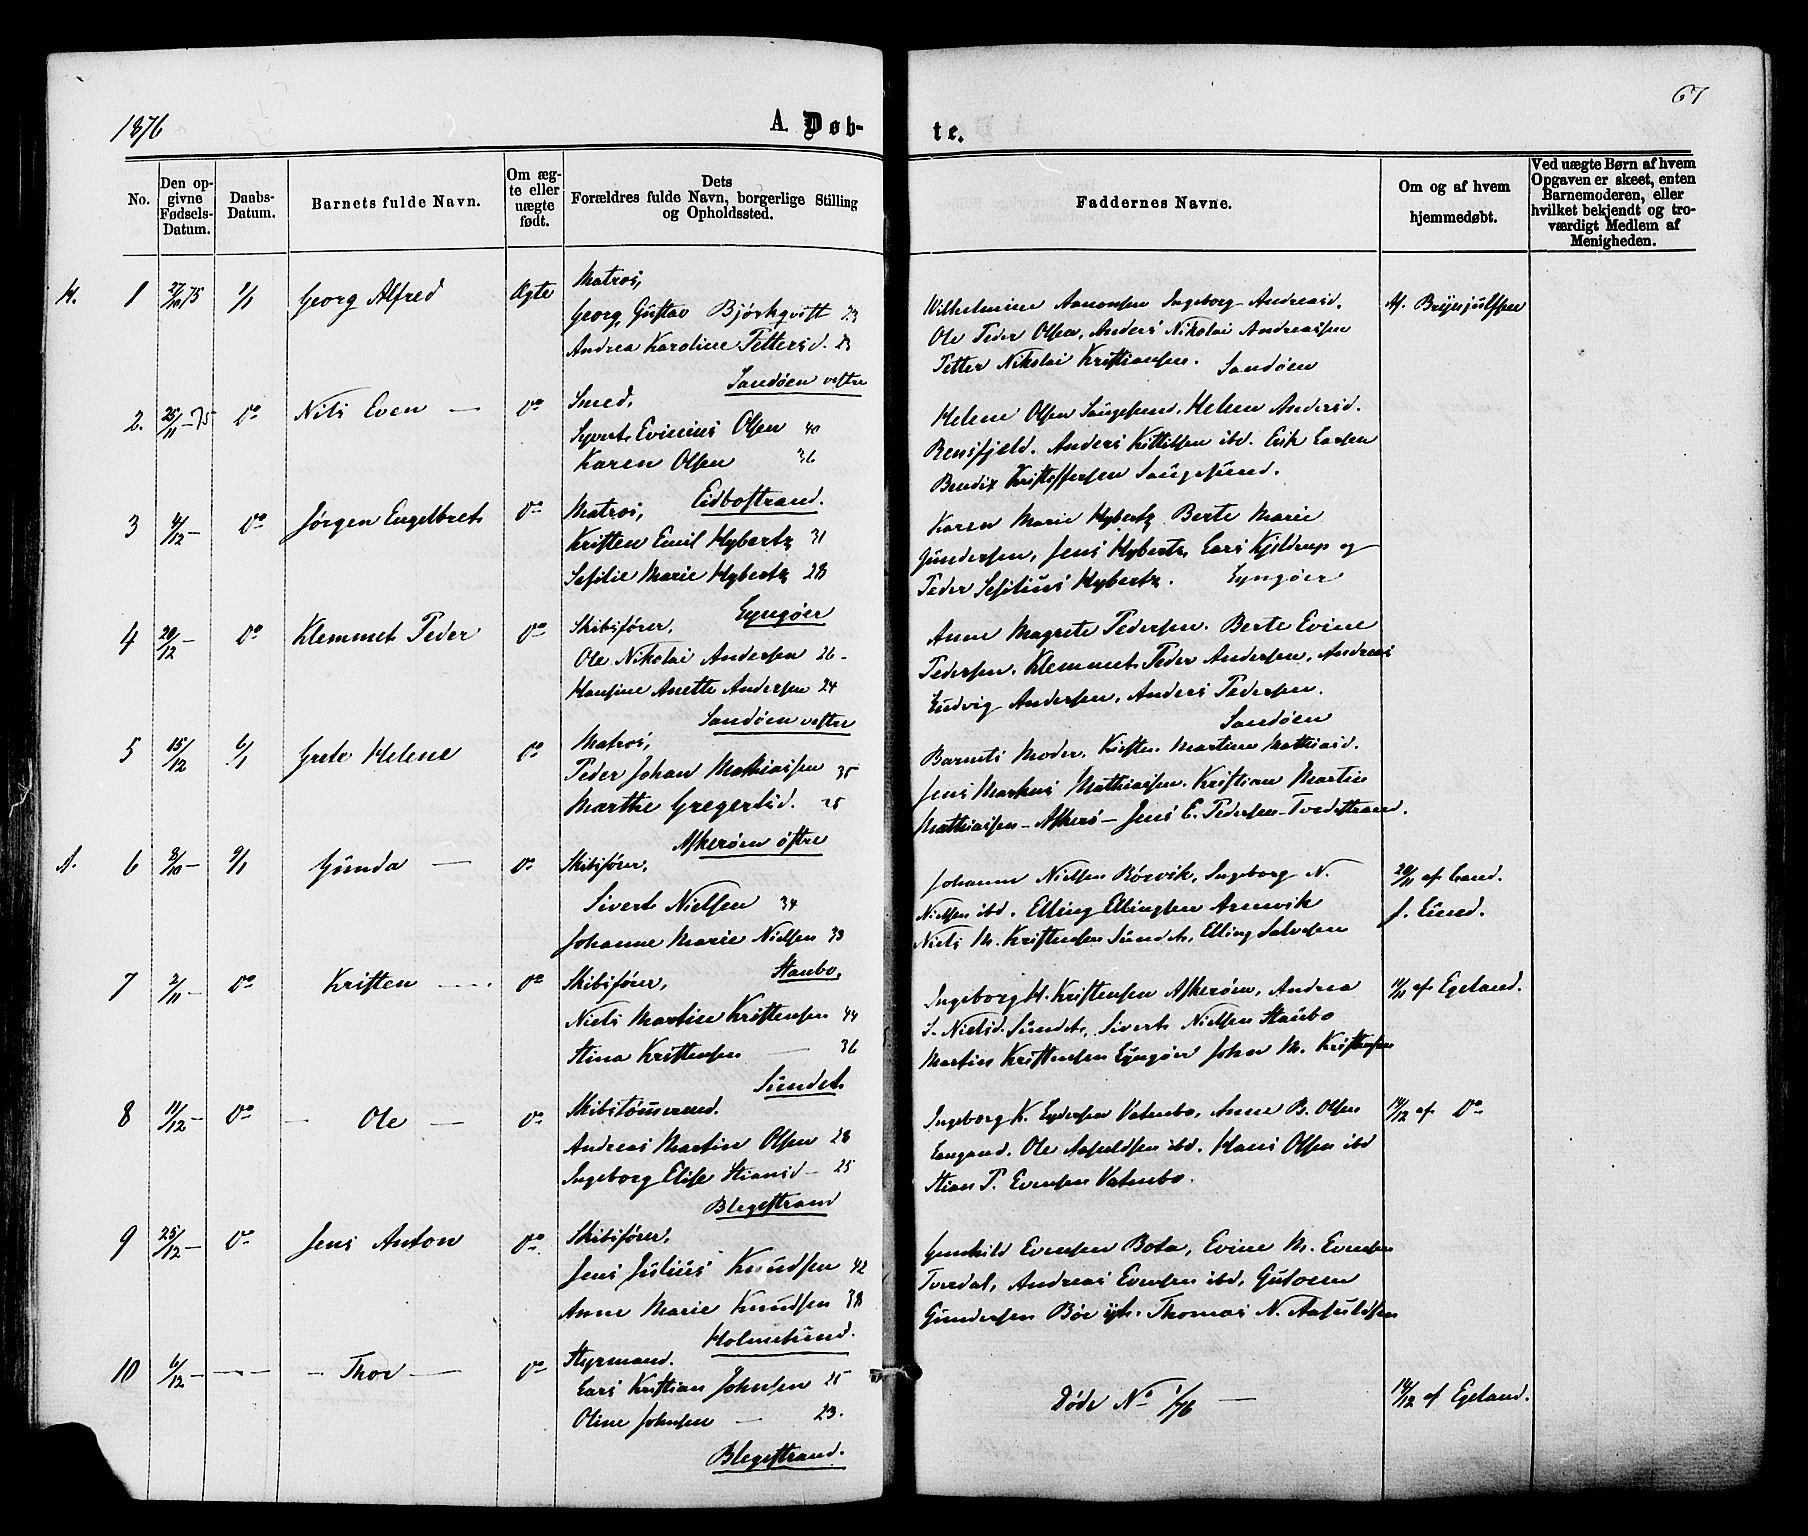 1876
A. Døb-
te.
67
No.
Den op-
givne
Fødsels-
Datum.
Daabs-
Datum.
Barnets fulde Navn.
Om æg-
te eller
uægte
født.
Dets
Forældres fulde Navn, borgerlige Stilling
og Opholdssted.
Faddernes Navne.
Om og af hvem
hjemmedøbt.
Ved uægte Børn af hvem
Opgaven er skeet, enten
Barnemoderen, eller
hvilket bekjendt og tro-
værdigt Medlem af
Menigheden.
H. 1 27/10 75 1/1 Georg Alfred Ægte
Matros,
Georg Gustav Bjørkqvist 23
Andrea Karoline Petters d. 23
Sandøen vestre
Wilhelmine Aanonsen Ingeborg Andreasd.
Ole Peder Olsen, Anders Nikolai Andreassen
Petter Nikolai Kristiansen. Sandøen
Af Brynjulfsen
2. 25/11 - 75 Do Nils Even — Do
Smed,
Syvert Evinius Olsen 40
Karen Olsen 36
Eidbostrand.
Helene Olsen Saugesund, Helene Andersd.
Rensfjeld. Anders Kittilsen ibd. Erik Larsen
Bendix Kristoffersen Saugesund.
3 4/12 - Do Jørgen Engelbret Do
Matros,
Kristen Emil Hybertz 31
Sefilie Marie Hybertz 28
Lyngøer
Karen Marie Hybertz Berte Marie
Gundersen, Jens Hybertz, Lars Kjeldrup og
Peder Sefilius Hybertz. Lyngøer
4 20/12 - Do Klemmet Peder Do
Skibsfører,
Ole Nikolai Andersen 26 -
Hansine Anette Andersen 24
Sandøen vestre
Anne Magrete Pedersen. Berte Evine
Pedersen. Klemmet Peder Andersen, Andreas
Ludvig Andersen, Anders Pedersen.
Sandøen
5 15/12 6/1 Grete Helene Do
Matros,
Peder Johan Mathiassen 35
Marthe Gregersd. 25
Askerøen østre
Barnets Moder, Kirsten Martine Mathiasd.
Jens Markus Mathiassen. Kristian Martin
Mathiassen - Askerø - Jens E. Pedersen - Tvedestrand.
A. 6 8/10 - 9/1 Gunda — Do
Skibsfører,
Sivert Nielsen 34
Johanne Marie Nielsen 33
Staubo,
Johanne Nielsen Børvik, Ingeborg N.
Nielsen ibd. Elling Ellingsen Arnevik
Niels M. Kristensen Sundet, Elling Salvesen
20/11 af Cand.
J. Lund.
7 2/11 - Do Kristen Do
Skibsfører,
Niels Martin Kristensen 44
Stina Kristensen — 36
Sundet
Ingeborg H. Kristensen Askerøen, Andrea
S. Nielsd. Sundet, Sivert Nielsen Staubo
Martin Kristensen Lyngøer Johan M. Kristensen
af Egeland.
8 11/12 - Do — Ole — Do
Skibstømmermd.
Andreas Martin Olsen 28
Ingeborg Elise Stiansd - 25
Blegestrand
Ingeborg K. Eydersen Vatnebo, Anne B. Olsen
Langand. Ole Aasuldsen ibd. Hans Olsen ibd
Stian P. Evensen Vatnebo.
14/12 af Do
9 25/12 - Do Jens Anton Do
Skibsfører,
Jens Julius Knudsen 42
Anne Marie Knudsen 38
Holmesund.
Gunhild Evensen Bota, Evine M. Evensen
Tverdal, Andreas Evensen ibd, Gutorm
Gundersen Thomas N. Aasuldsen
10 6/12 — — Thor — Do
Styrmand.
Lars Kristian Johnsen 25
Oline Johnsen — 23.
Blegestrand.
Døde No 1/76 —
14/12 af Egeland.